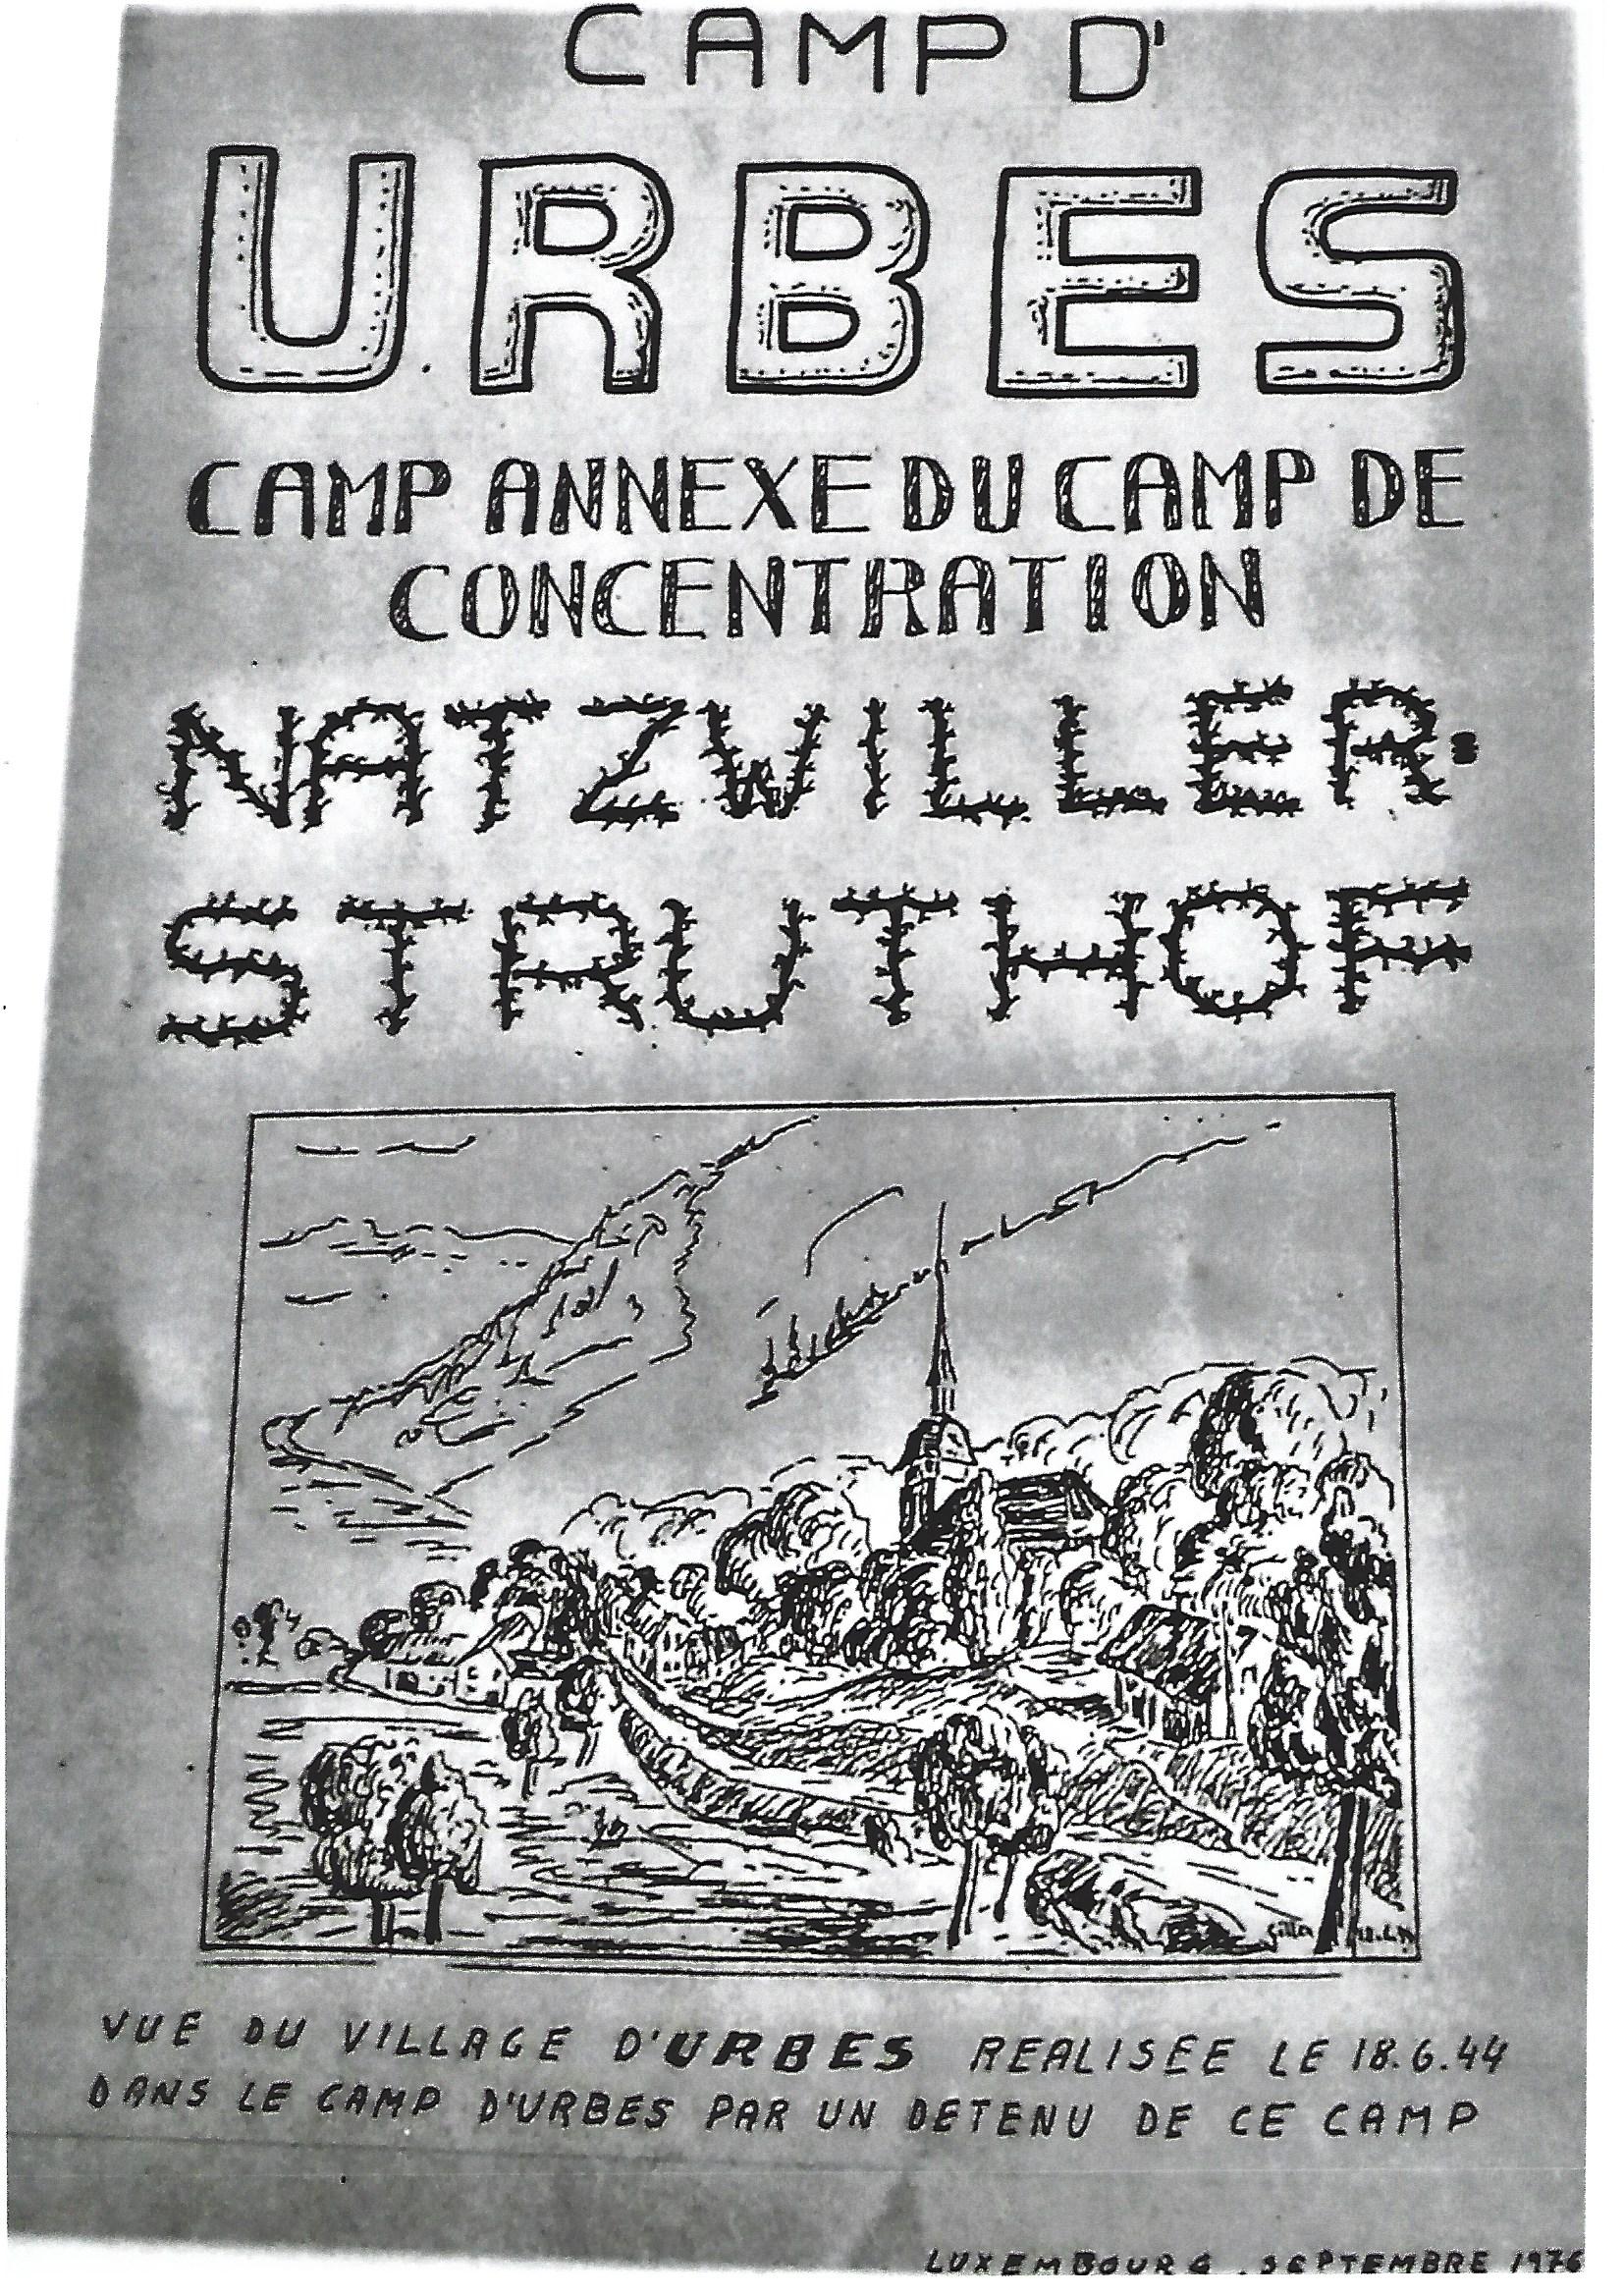 CAMP D'
URBES
CAMP ANNEXE DU CAMP DE
CONCENTRATION
NATZWILLER-
STRUTHOF
VUE DU VILLAGE D'URBES REALISEE LE 18.6.44
DANS LE CAMP D'URBES PAR UN DETENU DE CE CAMP
LUXEMBOURG, SEPTEMBRE 1976